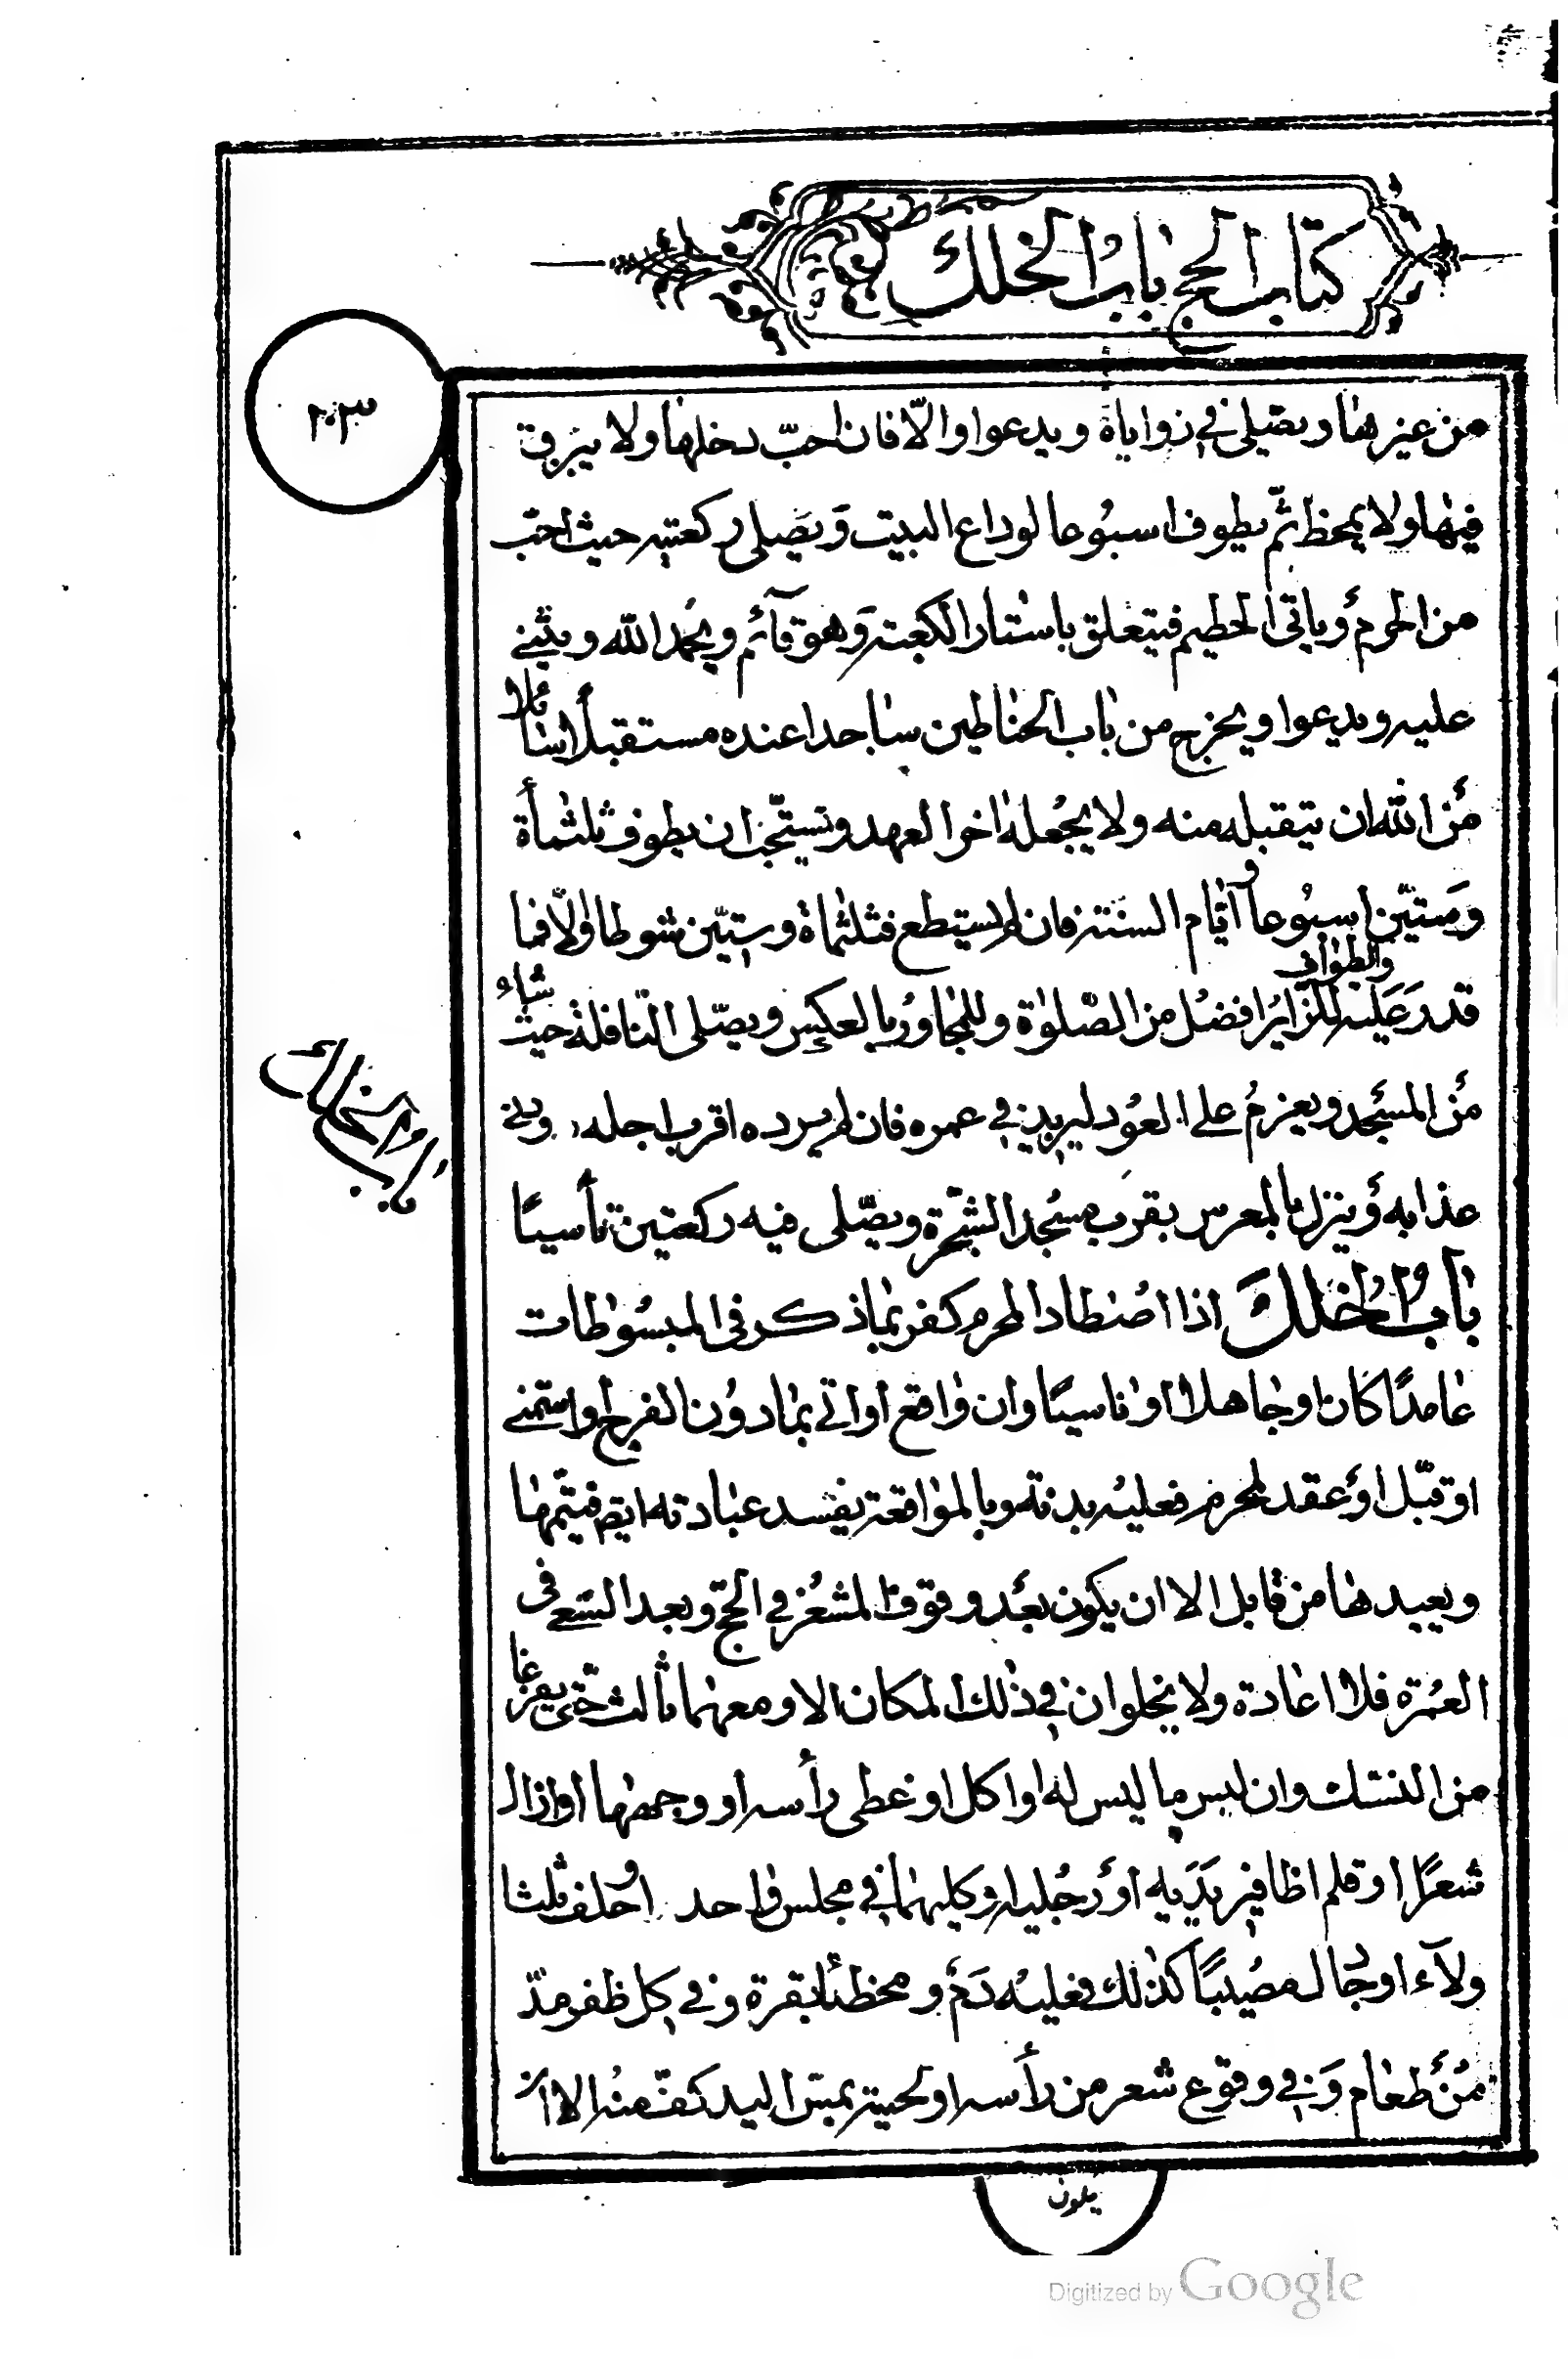 كتاب الحج باب الخلل
٢٠٣
من غيرها ويصلى فى زواياه ويدعوا والّا فان احبّ دخلها ولا يبزق
فيها ولا يمخط ثمّ يطوف اسبُوعا لوداع البيت وَيصَلى ركعتيه حيث احبّ
من الحرم وَياتى الحطيم فيتعلق باستار الكعبة وَهو قآئم ويحمد الله ويثنى
عليه ويدعوا ويخرج من باب الحناطين ساجدا عنده مستقبلاً سائلا
مَن الله ان يتقبله منه ولا يجعله اخر العهد ويستحّب ان يطوف ثلثمأة
وَستيّن اسبُوعا و ايّام السنة فان لم يستطع فثلثماة وستيّن شوطا والّا فما
قدر عَليه والطواف للزّاير افضل من الصّلوة وللمجاور بالعكس ويصّلى النّافلة حيث شاء
مَن المسجد ويعزمُ على العَود ليزيد فى عمره فان لم يرده اقرب اجله ودنى
عذابه وَينزل بالمعرس بقرب مسَجد الشّجرة ويصّلى فيه ركعتين تأسيًا
بابُ الخلل اذا اصطاد المحرم كفر بما ذكر فى المبسُوطات
عامدًا كان او جاهلا او ناسيًا وان واقع او اتى بما دُون الفرج او استمنى
او قبّل او عقد لمحرم فعليه بدنة وبالمواقعة يفسد عبادته ايضا فيتّمها
ويعيدها من قابل الا ان يكون بعَد وقوف المشعُر فى الحّج وبعد السّعى فى
العُمرة فلا اعادة ولا يخلوان فى ذلك المكان الا ومعهما ثالث حتى يفرغا
من النسك وان لبس ما ليس له او اكل او غطى رأسه او وجهها او ازال
شعرًا او قلم اظافير يَديه او رجُليه او كليهما فى مجلس واحد او حلف ثلثا
ولآء او جَال مصُيبًا كذلك فعليه دَم و مخطئا بقرة و فى كل ظفر مدّ
مُن طعام وَ فى وقوع شعر من رأسه او لحيته بمسّ اليد كفّ منه الا ان
باب الخلل
يكون
Digitized by Google